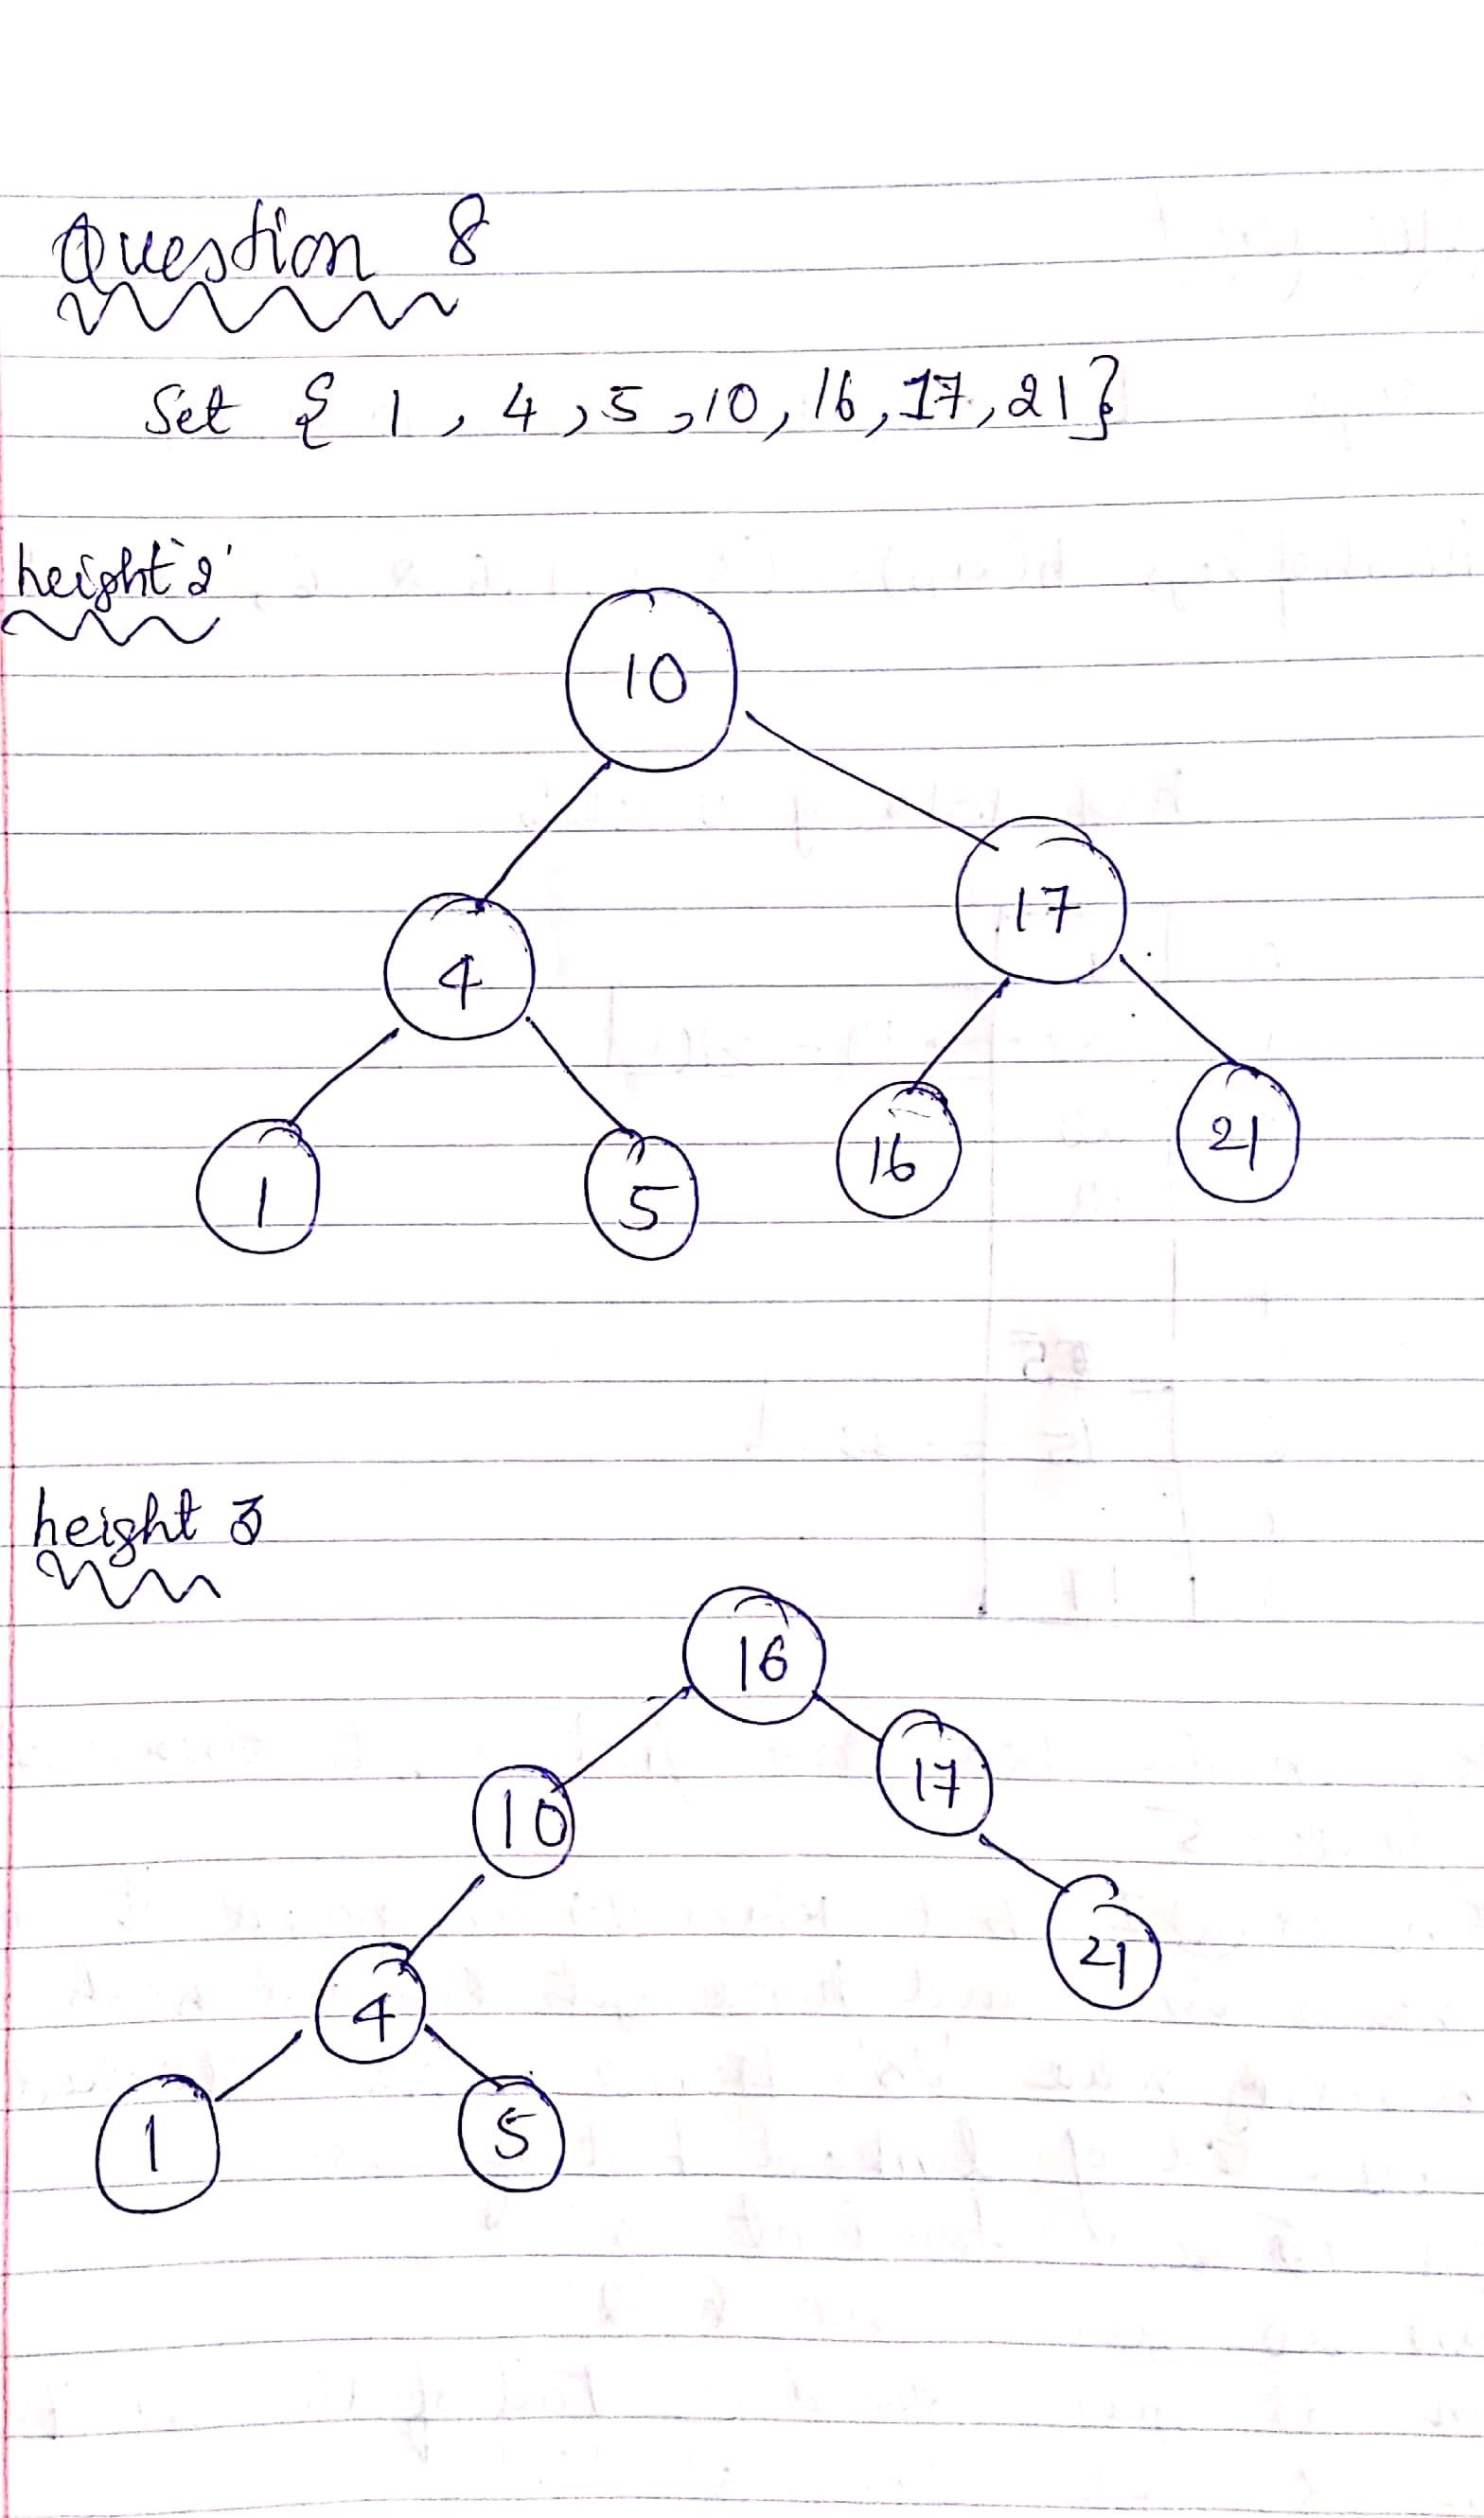 Question 8
Set { 1, 4, 5, 10, 16, 17, 21}
height '2'
10
4 17
1 5 16 21
height 3
16
10 17
4 21
1 5